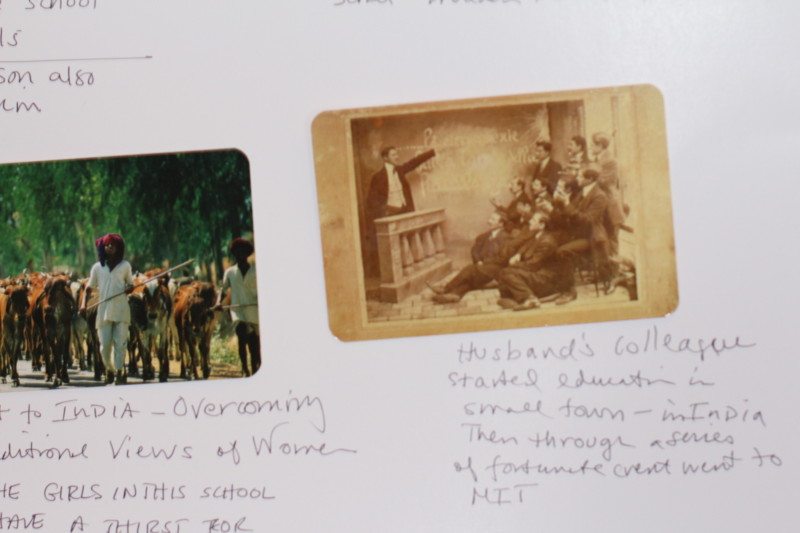 SCHOOL
ls
son also
um
t to INDIA - Overcoming
ditional Views of Women
HE GIRLS IN THIS SCHOOL
HAVE A THIRST FOR
Husband's colleague
started education in
small town - in India
Then through a series
of fortunate event went to
MIT